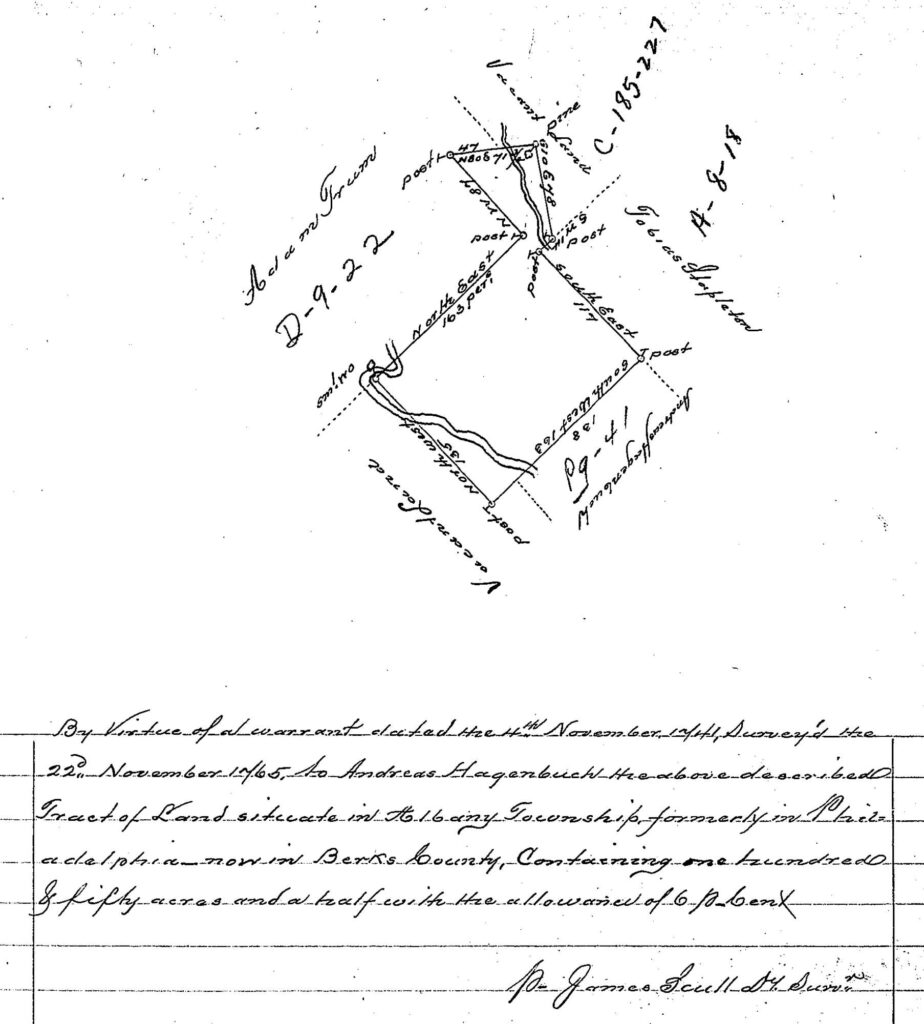 Vacant
Pine
Land
C-185-227
A-8-18
Adam Trum
D-9-22
post
47
N80E71
S10E78
N W 87
post
post
post
Tobias Stapleton
North East
163 per:
South East
117
post
South West 163
138
Pg-41
Andreas Hagenbuch
North west
135
post
Vacant Land
By Virtue of a warrant dated the 4th November 1741, Survey'd the
22d November 1765, to Andreas Hagenbuch the above described
Tract of Land situate in Albany Township, formerly in Phil-
adelphia now in Berks County, Containing one hundred
& fifty acres and a half with the allowance of 6 P Cent
P James Scull Dy. Survr.